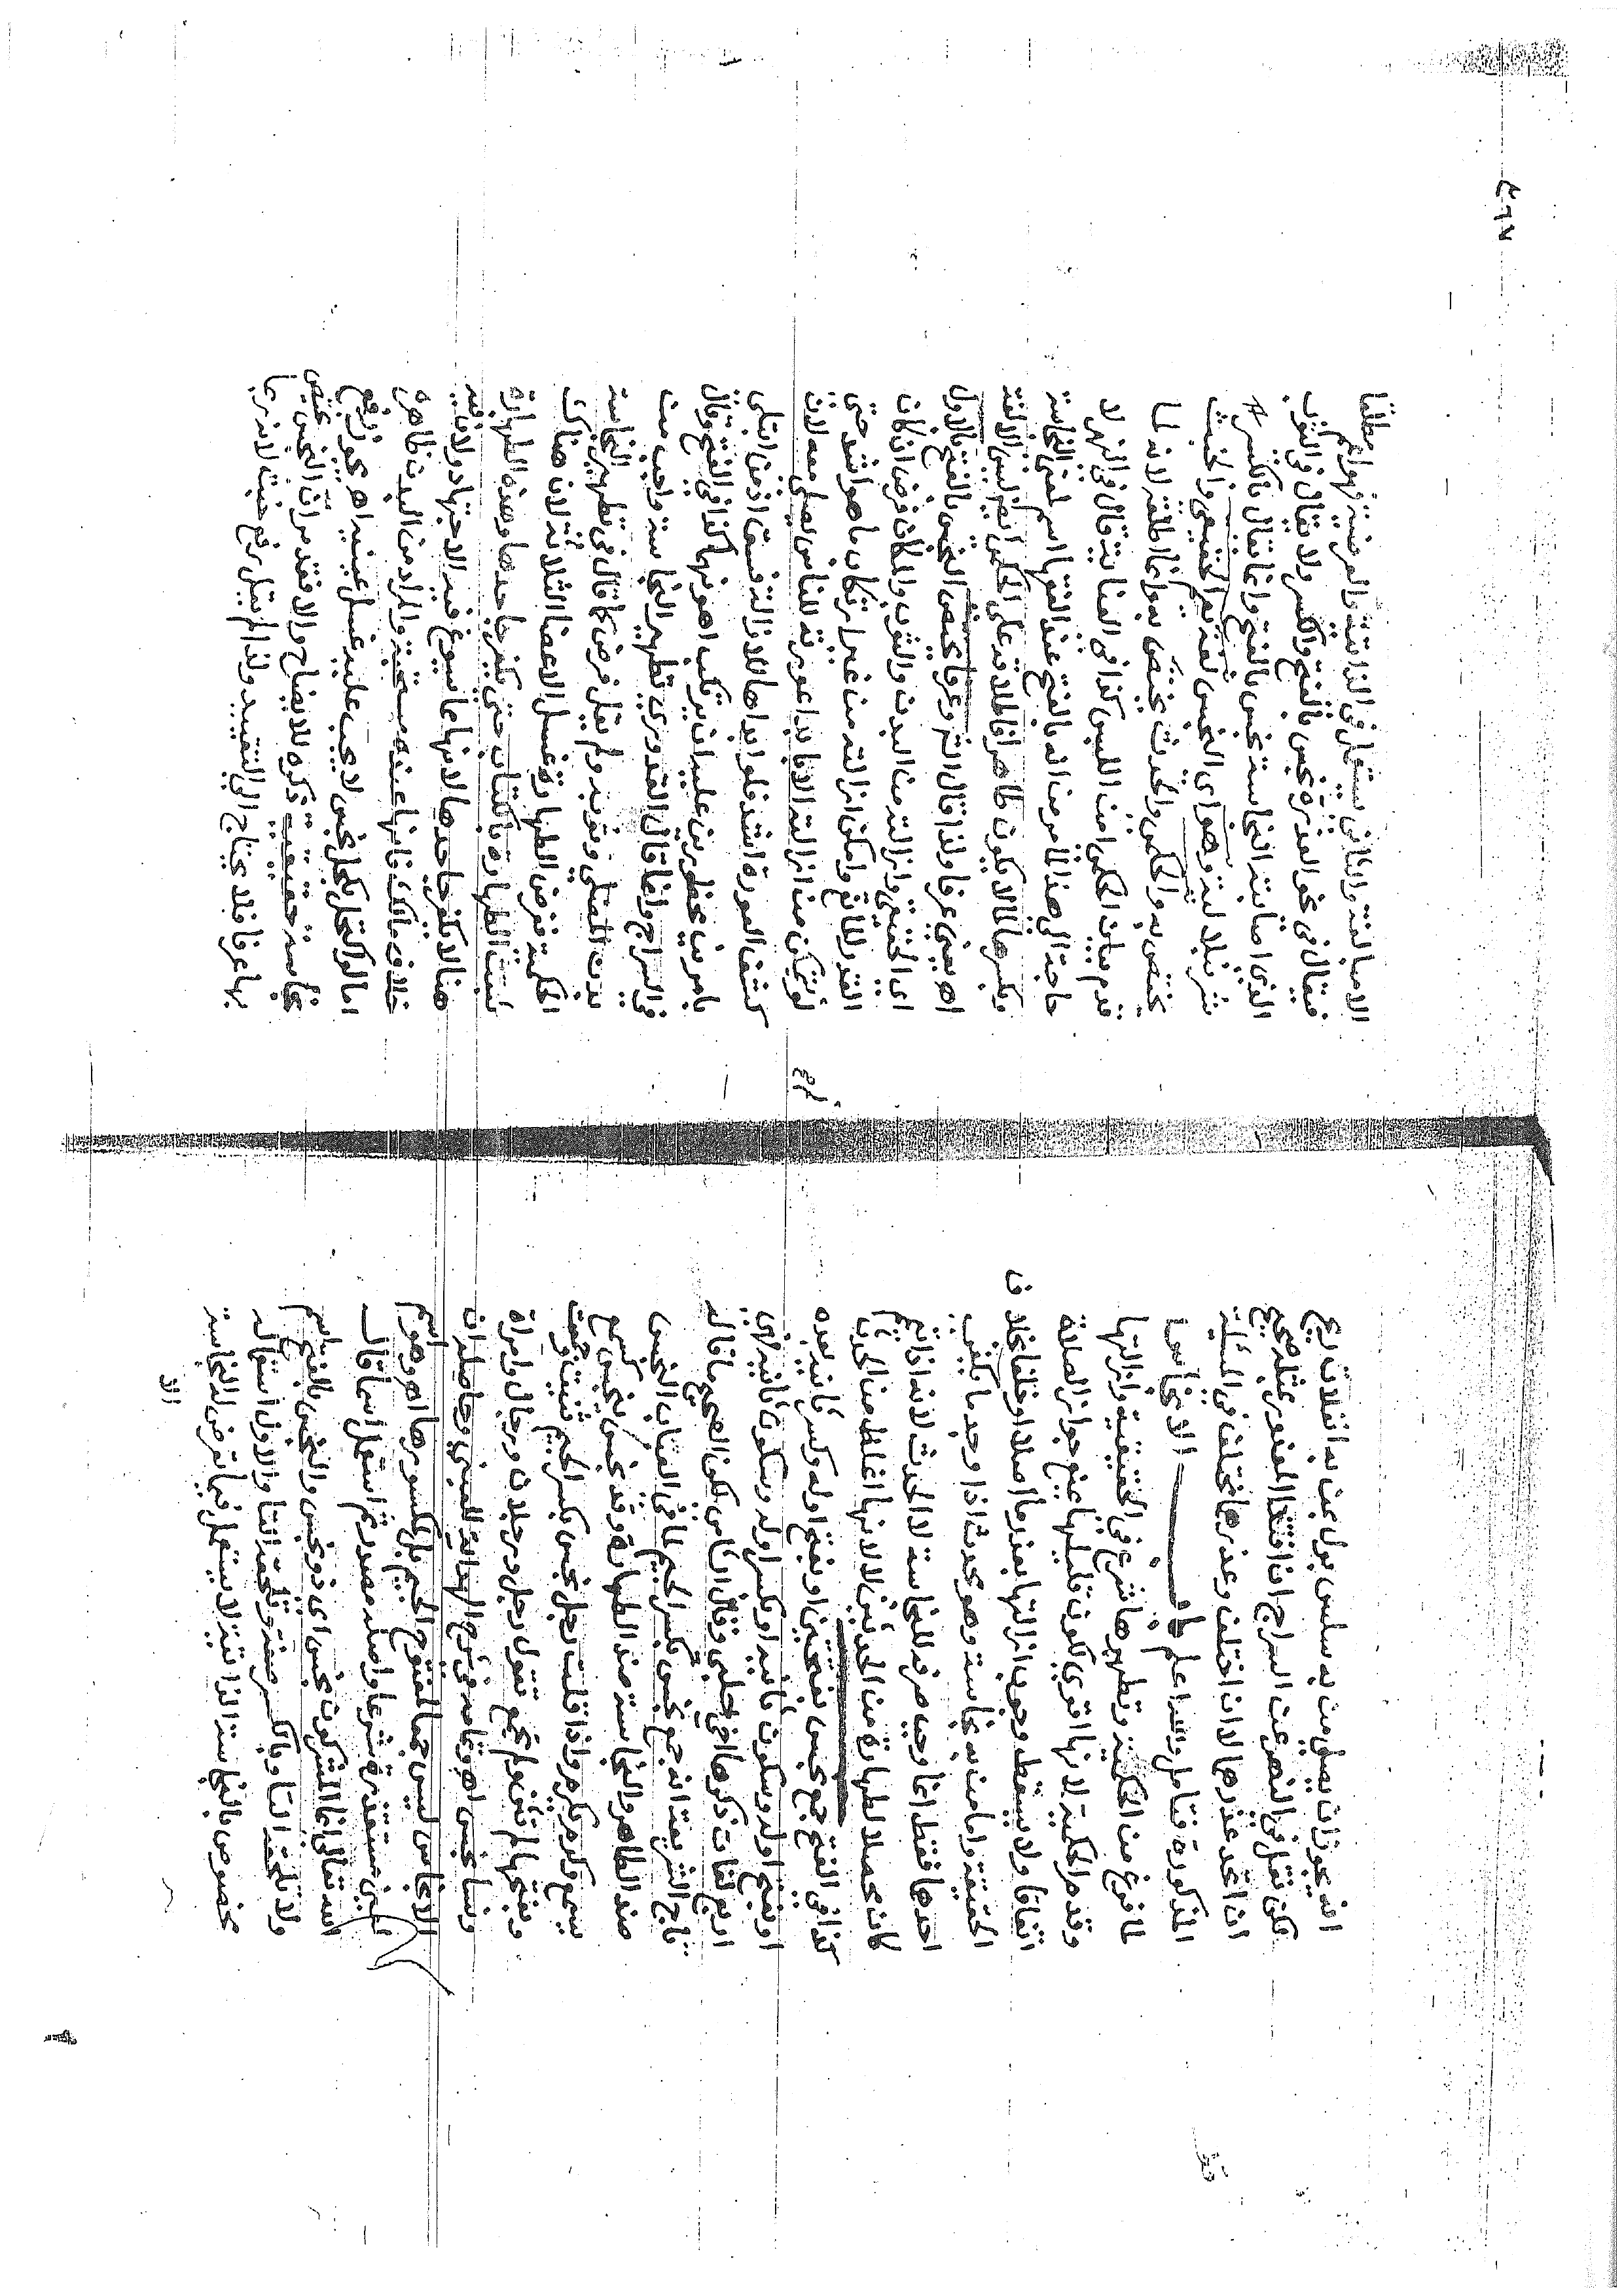 انه يجوز ان يصلي من به سلس بول بمن به انفلات ريح
لكن نقل في النهر عن السراج اذا اقتدا المعذور بمثله صحيح
ان اتحد عذرهما لا ان اختلف وعذرهما مختلف في المسئلة
المذكورة فتامل والله اعلم باب الانجاس
لما فرغ من الحكمية وتطهيرها شرع في الحقيقية وازالتها
وقدم الحكمية لانها اقوى لكون قليلها يمنع جواز الصلاة
اتفاقا ولا يسقط وجوب ازالتها بعذر ما اصلا او خلفا بخلاف
الحقيقة واما من به نجاسة وهو محدث اذا وجد ما يكفي
احدهما فقط انما وجب صرفه للنجاسة لا الحدث لانه اذا تيمم
كان عملا بالطهارة من الحدثين لا لانها اغلظ من الحدث
كذا في الفتح جمع نجس بفتحتين او بفتح اوله وكسر ثانيه بعده
او بفتح اوله وسكون ثانيه او بكسر اوله وسكون ثانيه فهي
اربع لغات ذكرها اخي جلبي وقال لكن الصحيح ما قاله
تاج الشريعة انه جمع نجس بكسر الجيم لما في العباب النجس
ضد الطاهر والنجاسة ضد الطهارة وقد نجس ينجس كسمع
يسمع وكرم يكرم واذا قلت رجل نجس بكسر الجيم ثنيت وجمعت
وبفتحها لم تثن ولم تجمع تقول رجل ورجلان ورجال وامراة
ونسا نجس اه وتمامه في شرح الهداية للعيني وحاصله ان
الانجاس ليس جمعا لمفتوح الجيم بل لمكسورها اه وهو اسم
لعين مستقذرة شرعا واصله مصدر ثم استعمل اسما قال
الله تعالى انما المشركون نجس اي ذوو نجس والنجس بالفتح اسم
ولا تلحقه التا وبالكسر صفة وتلحقه التا والاول استعماله
مخصوص بالنجاسة الذاتية لا يستعمل فيما تعرض له النجاسة
الا
الا مبالغة والثاني يستعمل في الذاتية والعرضية فهو اعم مطلقا
فيقال في نحو العذرة نجس بالفتح والكسر ولا يقال في الثوب
الذي اصابته النجاسة نجس بالفتح وانما يقال بالكسر
شرنبلالية وهو اي النجس لغة يعم الحقيقي والخبث
يختص به والحكمي والحدث يختص به وانما اطلقه لانه لما
قدم بيان الحكمي امن اللبس كذا في العناية قال في النهر لا
حاجة الى هذا لما مر من انه بالفتح عند الفقها اسم لعين النجاسة
وبكسرها لما لا يكون طاهرا فاطلاقه على الحكمي ايضا ليس الا لغة
اه يعني عرفا ولذا قال الشر وعرفا يختص النجس بالفتح بالاول
اي الحقيقي وازالته من البدن والثوب والمكان فرض ان كان
القدر المانع وامكن ازالته من غير ارتكاب ما هو اشد حتى
لو تمكن من ازالته الا بابداء عورته للناس يصلي معه لان
كشف العورة اشد فلو ابداها للازالة فسق اذ من ابتلى
بامرين محظورين عليه ان يرتكب اهونهما كذا في الفتح وقال
في السراج وانما قال القدوري تطهير النجاسة واجب من
بدن المصلي وثوبه ولم يقل فرض كما قال في تطهير النجاسة
الحكمية ففرض الطهارة غسل الاعضا الثلاثة لان هناك
ثبتت الطهارة بالكتاب حتى يكفر جاحدها وهذه الطهارة
هنا لا يكفر جاحدها لانها مما يسوغ فيه الاجتهاد ولانه
خلاف مالك فانها عنده مستحبة والمراد من البدن ظاهره
اما لو اكتحل بكحل نجس لا يجب عليه غسل عينيه اه يجوز رفع
نجاسة حقيقية ذكره للايضاح والا فقد مر ان النجس يختص
بها عرفا فلا يحتاج الى التقييد ولذا لم يقل رفع خبث لانه مر